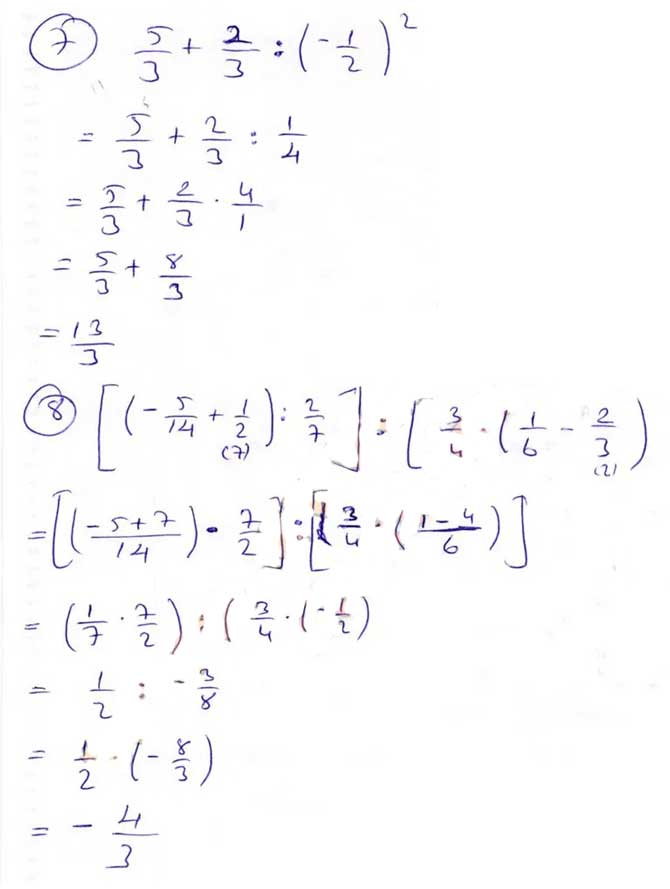 7 5/3 + 2/3 : (-1/2)^2
= 5/3 + 2/3 : 1/4
= 5/3 + 2/3 · 4/1
= 5/3 + 8/3
= 13/3
8 [(-5/14 + 1/2 (7)) : 2/7] : [3/4 · (1/6 - 2/3 (2))
= [(-5+7/14) · 7/2] : [3/4 · (1-4/6)]
= (1/7 · 7/2) : (3/4 · (-1/2)
= 1/2 : -3/8
= 1/2 · (-8/3)
= -4/3